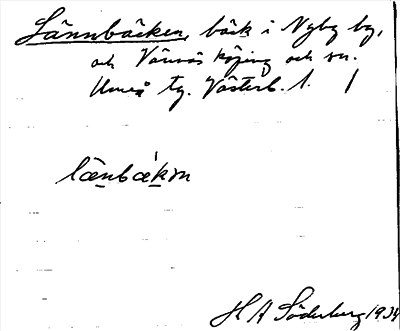 Lännbäcken, bäck i Nyby by,
och Vännäs köping och sn.
Umeå tg. Västerb. l. /
länbäkɷn
H A Söderberg 1934